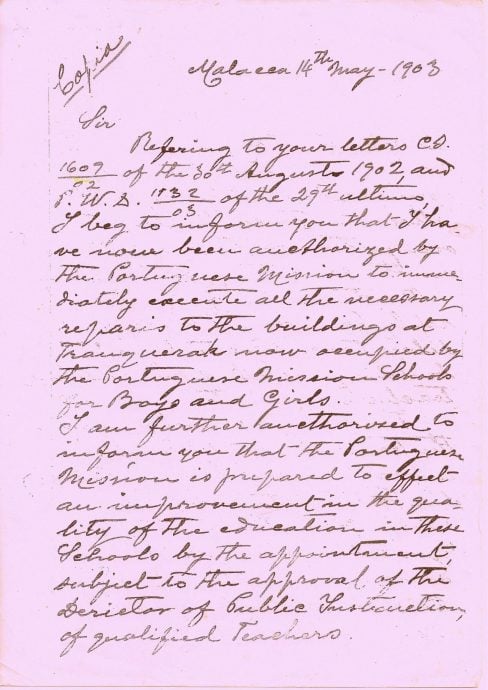 Copia
Malacca 14th May - 1903
Sir
Refering to your letters C.D.
1609/02 of the 30th August 1902, and
P. W. D. 1132/03 of the 29th ultimo,
I beg to inform you that I ha
ve now been authorized by
the Portuguese Mission to imme-
diately execute all the necessary
repairs to the buildings at
Tranquerah now occupied by
the Portuguese Mission Schools
for Boys and Girls.
I am further authorised to
inform you that the Portuguese
Mission is prepared to effect
an improvement in the qua-
lity of the education in these
Schools by the appointment,
subject to the approval of the
Derictor of Public Instruction,
of qualified Teachers.